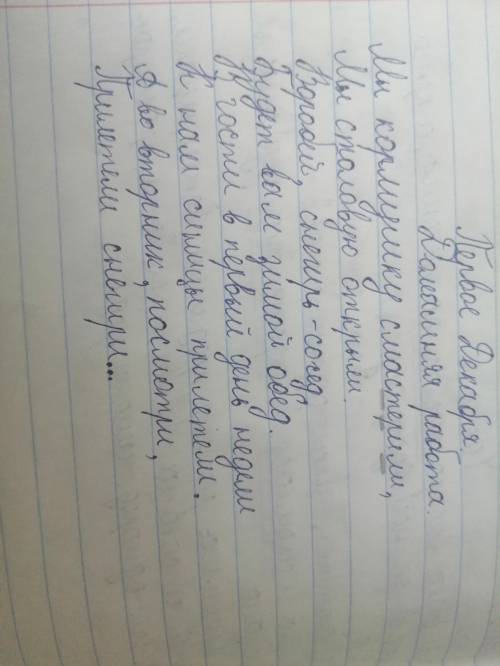 Первое Декабря.
Домашняя работа.
Мы кормушку смастерили,
Мы столовую открыли.
Воробей, снегирь-сосед,
Будет вам зимой обед.
В гости в первый день недели
К нам синицы прилетели.
А во вторник, посмотри,
Прилетели снегири...